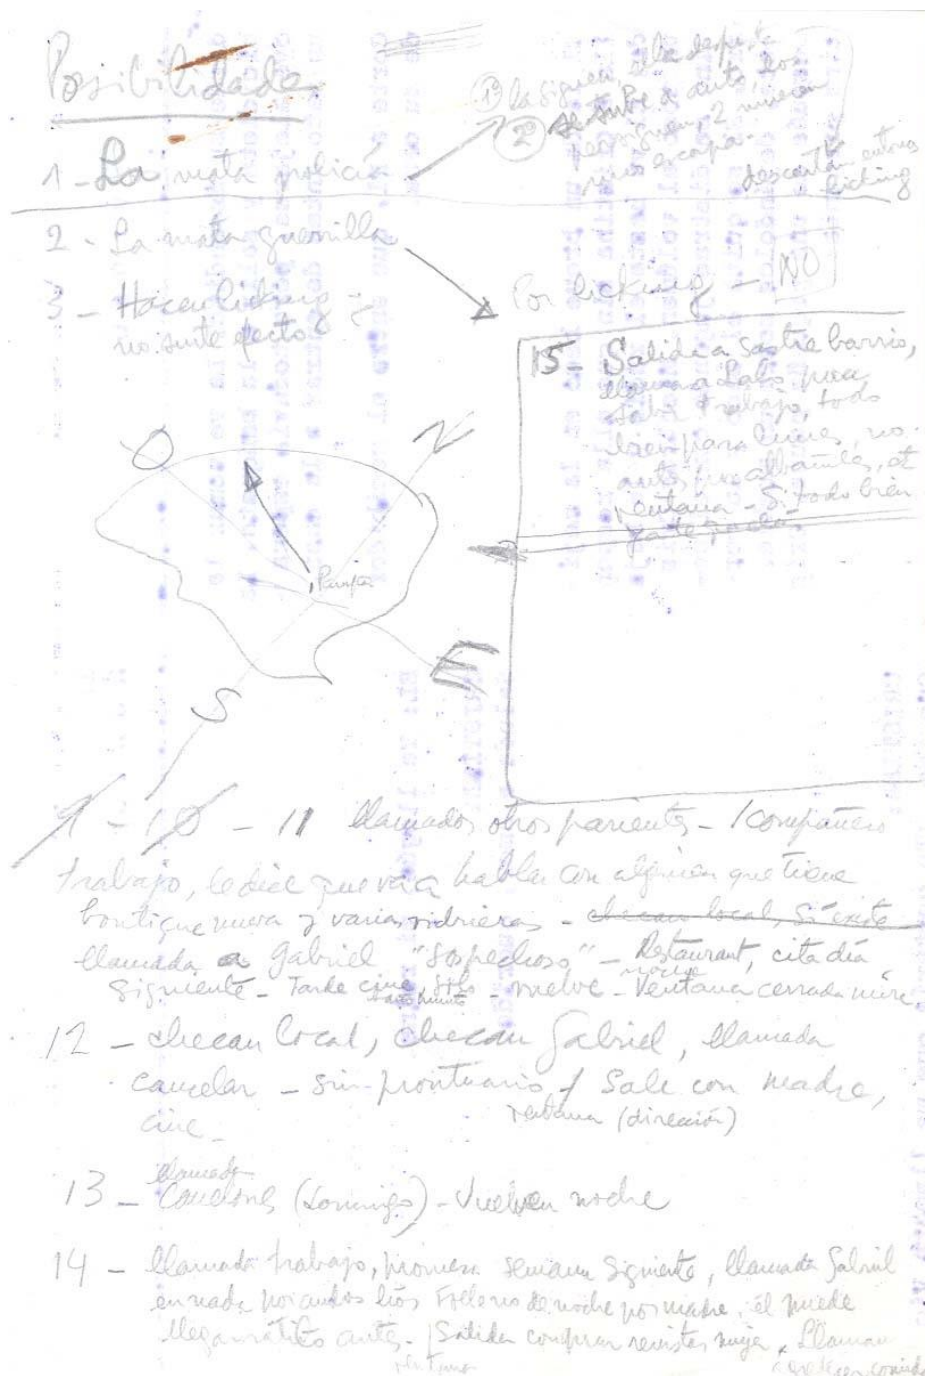 Posibilidades
1 - La mata policía
1º La siguen, ella despista
2º se sube a auto, los
persiguen, 2 mueren
uno escapa.
descartan entonces
licking
2 - La mata guerrilla
Por licking - NO
3 - Hacen licking y
no surte efecto
15 - Salida a sastre barrio,
llamar a Labo para
saber trabajo, todo
bien para lunes, no
antes por albañiles, et
ventana - Si todo bien
O
N
S
E
9 - 10 - 11 llamados otros parientes - 1 compañero
trabajo, le dice que va a hablar con alguien que tiene
boutique nueva y varias vidrieras - checan local, si existe
llamada a Gabriel "sospechoso" - Restaurant, cita día
siguiente - Tarde cine, solo - vuelve - noche Ventana cerrada
12 - checan local, checan Gabriel, llamada
cancelar - sin prontuario / Sale con madre,
cine - ventana (dirección)
13 - llamada (Domingo) - Vuelven noche
14 - llamada trabajo, promesa semana siguiente, llamada Gabriel
de noche por madre, él puede
llegar ratito antes - / Salida comprar revistas mujer, Llaman
ventana